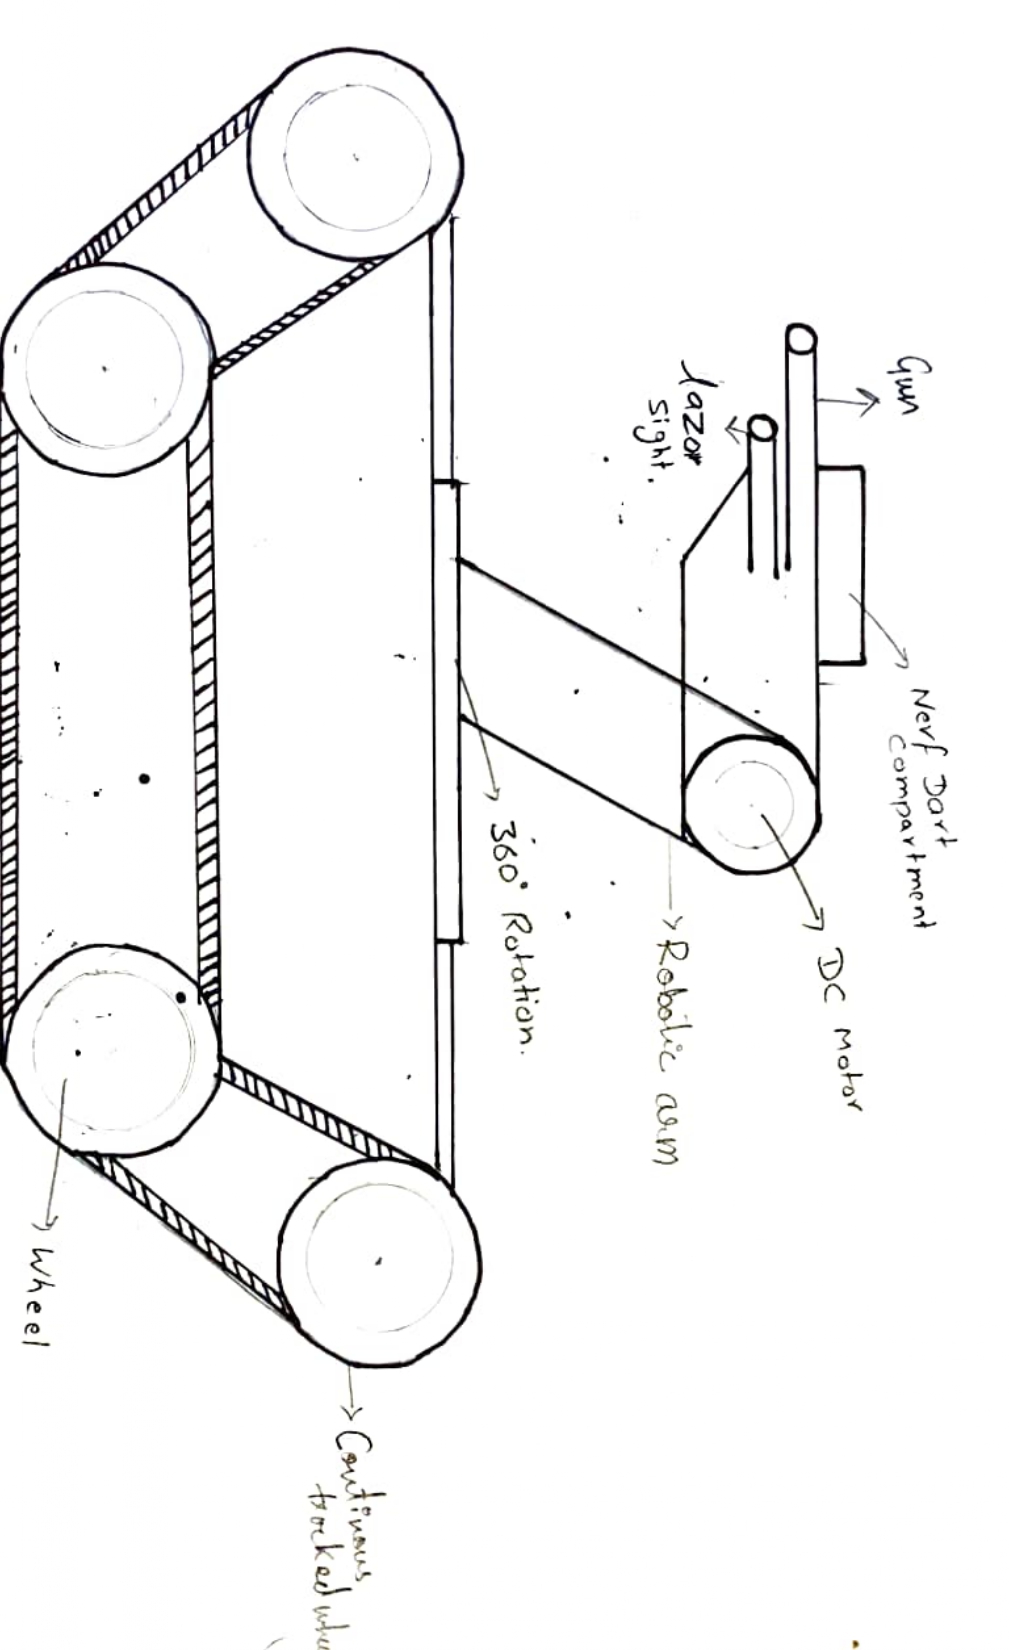 Gun
Nerf Dart
compartment
DC Motor
lazor
sight.
Robotic arm
360° Rotation.
Continous
tracked
Wheel